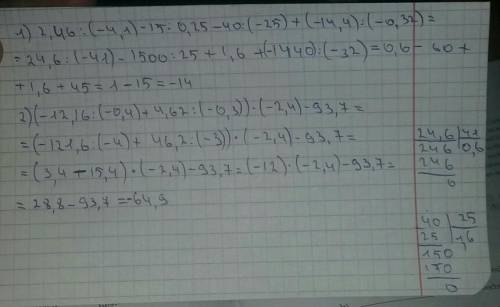 1) 2,46:(-4,1)-15:0,25-40:(-25)+(-14,4):(-0,32)=
=24,6:(-41)-1500:25+1,6+(-1440):(-32)=0,6-60+
+1,6+45=1-15=-14
2)(-12,16:(-0,4)+4,62:(-0,3))·(-2,4)-93,7=
=(-121,6:(-4)+46,2:(-3))·(-2,4)-93,7=
=(3,4-15,4)·(-2,4)-93,7=(-12)·(-2,4)-93,7=
=28,8-93,7=-64,9
24,6 41
246 0,6
246
0
40 25
25 1,6
150
150
0